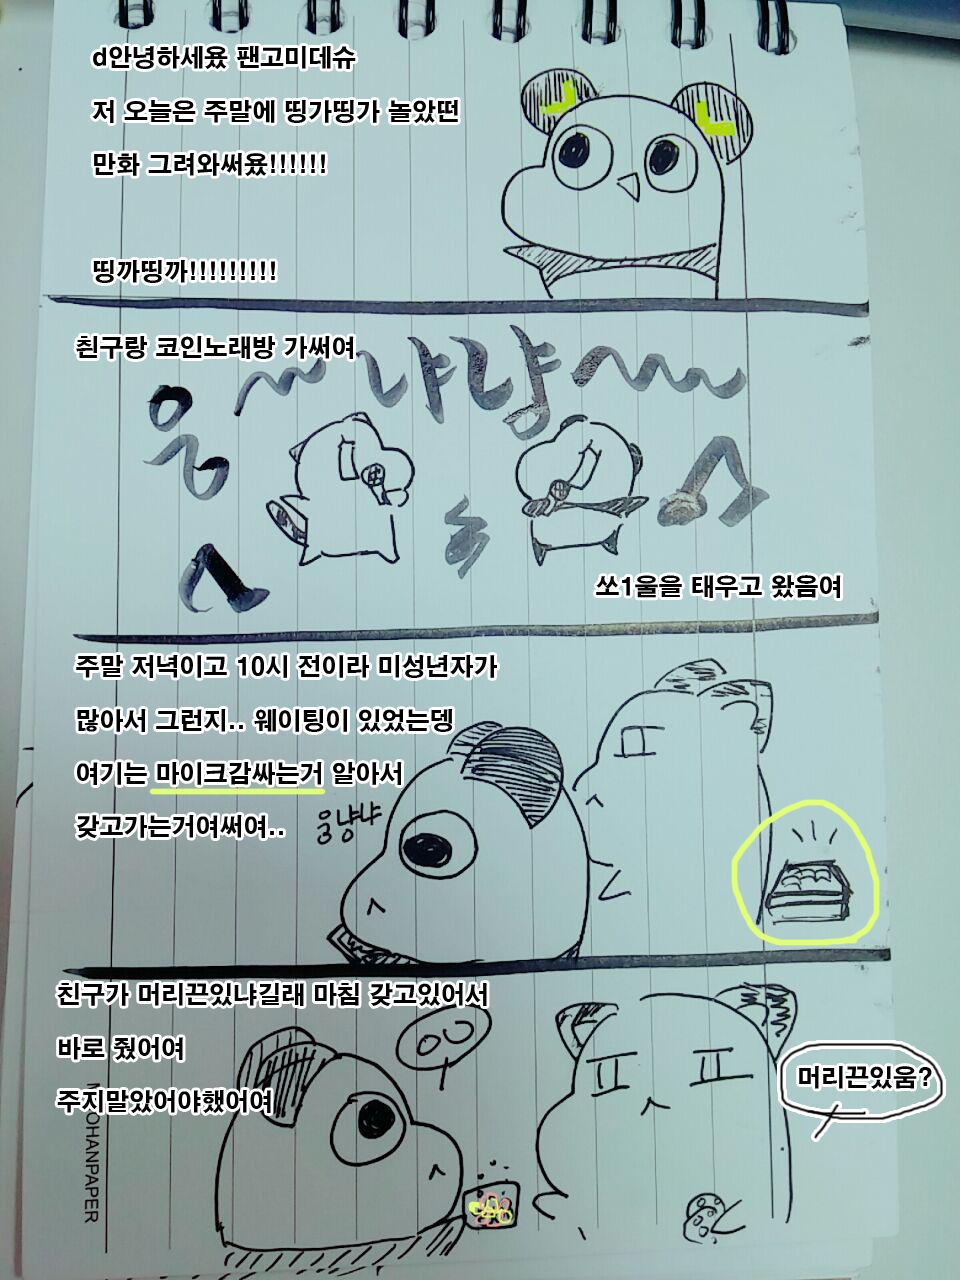 d안녕하세욨 팬고미데슈
저 오늘은 주말에 띵가띵가 놀았떤
만화 그려와써욨!!!!!!
띵까띵까!!!!!!!!!
친구랑 코인노래방 가써여
웅~냐냥~~~
쏘1울을 태우고 왔음여
주말 저녁이고 10시 전이라 미성년자가
많아서 그런지.. 웨이팅이 있었는뎅
여기는 마이크감싸는거 알아서
갖고가는거여써여..
웅냥냐
친구가 머리끈있냐길래 마침 갖고있어서
바로 줬어여
주지말았어야했어여
ㅇㅇ
머리끈있움?
OHANPAPER